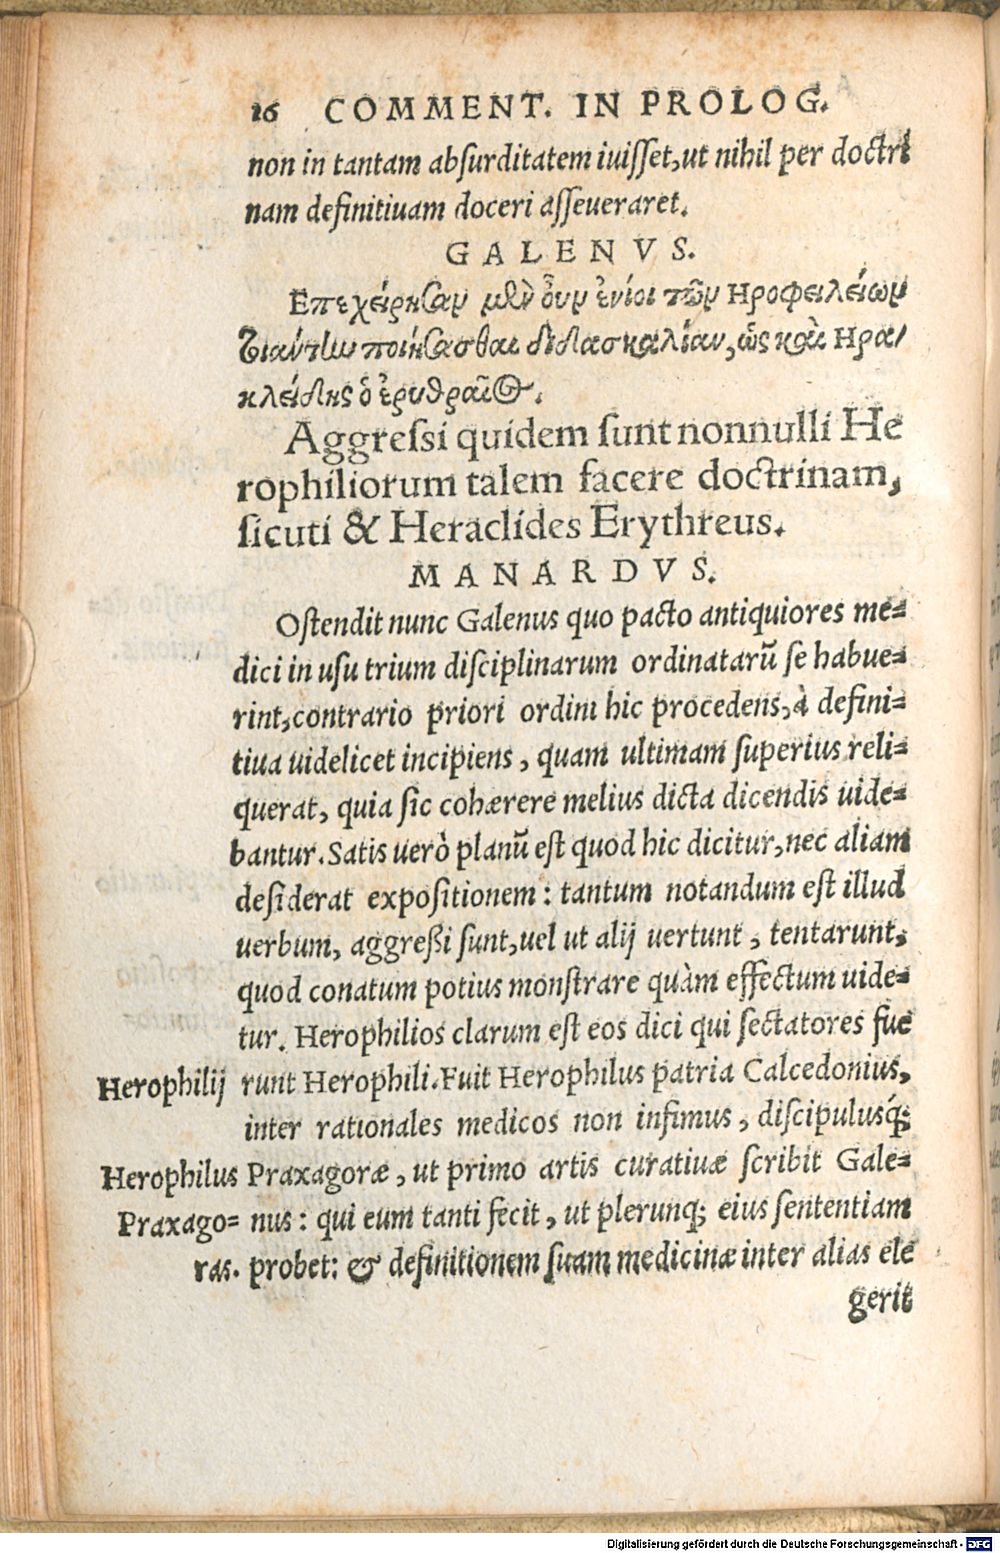 16 COMMENT. IN PROLOG.
non in tantam absurditatem iuisset, ut nihil per doctri
nam definitiuam doceri asseueraret.
GALENVS.
Επεχείρησαν μὲν οὖν ἐνίοι τῶν Ηροφειλείων
τιαύτην ποιήσασθαι διδασκαλίαν, ὡς καὶ Ηρα/
κλείδης ὁ ἐρυθραῖος.
Aggressi quidem sunt nonnulli He
rophiliorum talem facere doctrinam,
sicuti & Heraclides Erythreus.
MANARDVS.
Ostendit nunc Galenus quo pacto antiquiores me=
dici in usu trium disciplinarum ordinatarũ se habue=
rint, contrario priori ordini hic procedens, à defini=
tiua uidelicet incipiens, quam ultimam superius reli=
querat, quia sic cohærere melius dicta dicendis uide=
bantur. Satis uerò planũ est quod hic dicitur, nec aliam
desiderat expositionem: tantum notandum est illud
uerbum, aggreßi sunt, uel ut alij uertunt, tentarunt,
quod conatum potius monstrare quàm effectum uide=
tur. Herophilios clarum est eos dici qui sectatores fue
Herophilij runt Herophili. Fuit Herophilus patria Calcedonius,
inter rationales medicos non infimus, discipulusq́;
Herophilus Praxagoræ, ut primo artis curatiuæ scribit Gale=
Praxago= nus: qui eum tanti fecit, ut plerunq; eius sententiam
ras. probet: & definitionem suam medicinæ inter alias ele
gerit
Digitalisierung gefördert durch die Deutsche Forschungsgemeinschaft - DFG